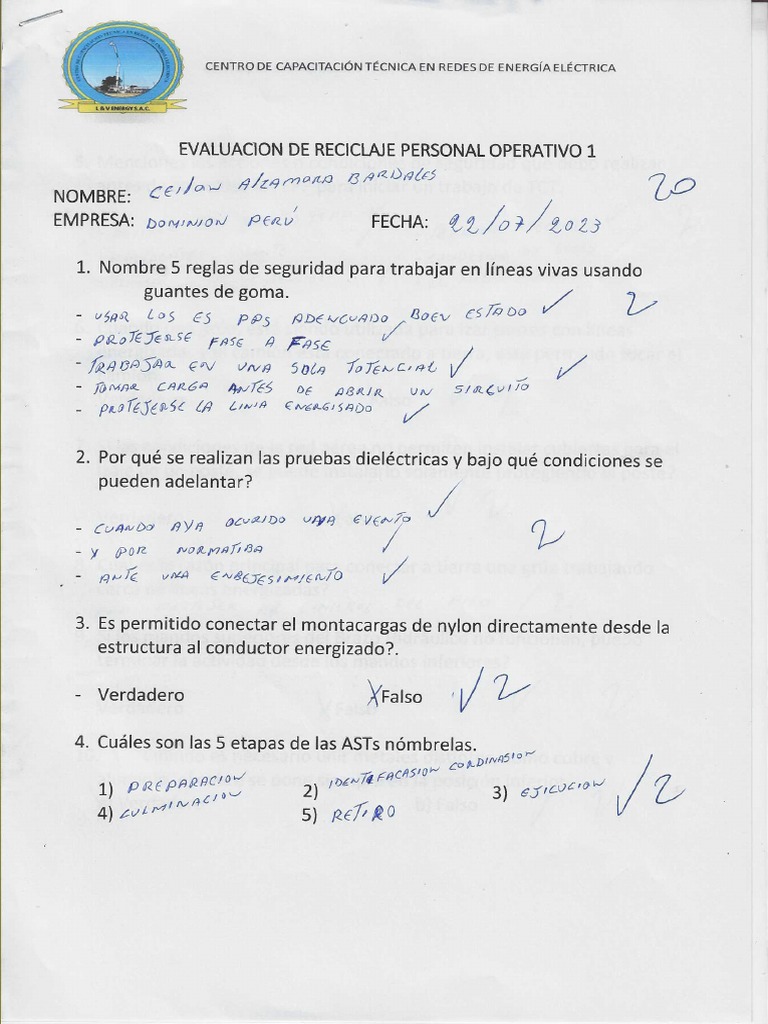 L & V ENERGY S.A.C.
CENTRO DE CAPACITACIÓN TÉCNICA EN REDES DE ENERGÍA ELÉCTRICA
EVALUACION DE RECICLAJE PERSONAL OPERATIVO 1
NOMBRE: CEILON ALZAMORA BARDALES 20
EMPRESA: DOMINION PERÚ FECHA: 22/07/2023
1. Nombre 5 reglas de seguridad para trabajar en líneas vivas usando
guantes de goma. 2
- USAR LOS ES PPS ADENCUADO BOEN ESTADO
- PROTEJERSE FASE A FASE
- TRABAJAR EN UNA SOLA TOTENCIAL
- TOMAR CARGA ANTES DE ABRIR UN SIRGUITO
- PROTEJERSE LA LINIA ENERGISADO
2. Por qué se realizan las pruebas dieléctricas y bajo qué condiciones se
pueden adelantar?
- CUANDO AYA OCURIDO UNA EVENTO
- Y POR NORMATIBA 2
- ANTE UNA ENBEJESIMIENTO
3. Es permitido conectar el montacargas de nylon directamente desde la
estructura al conductor energizado?.
- Verdadero X Falso 2
4. Cuáles son las 5 etapas de las ASTs nómbrelas.
1) PREPARACION 2) IDENTIFACASION CORDINASION 3) EJICUCION 2
4) CULMINACION 5) RETIRO